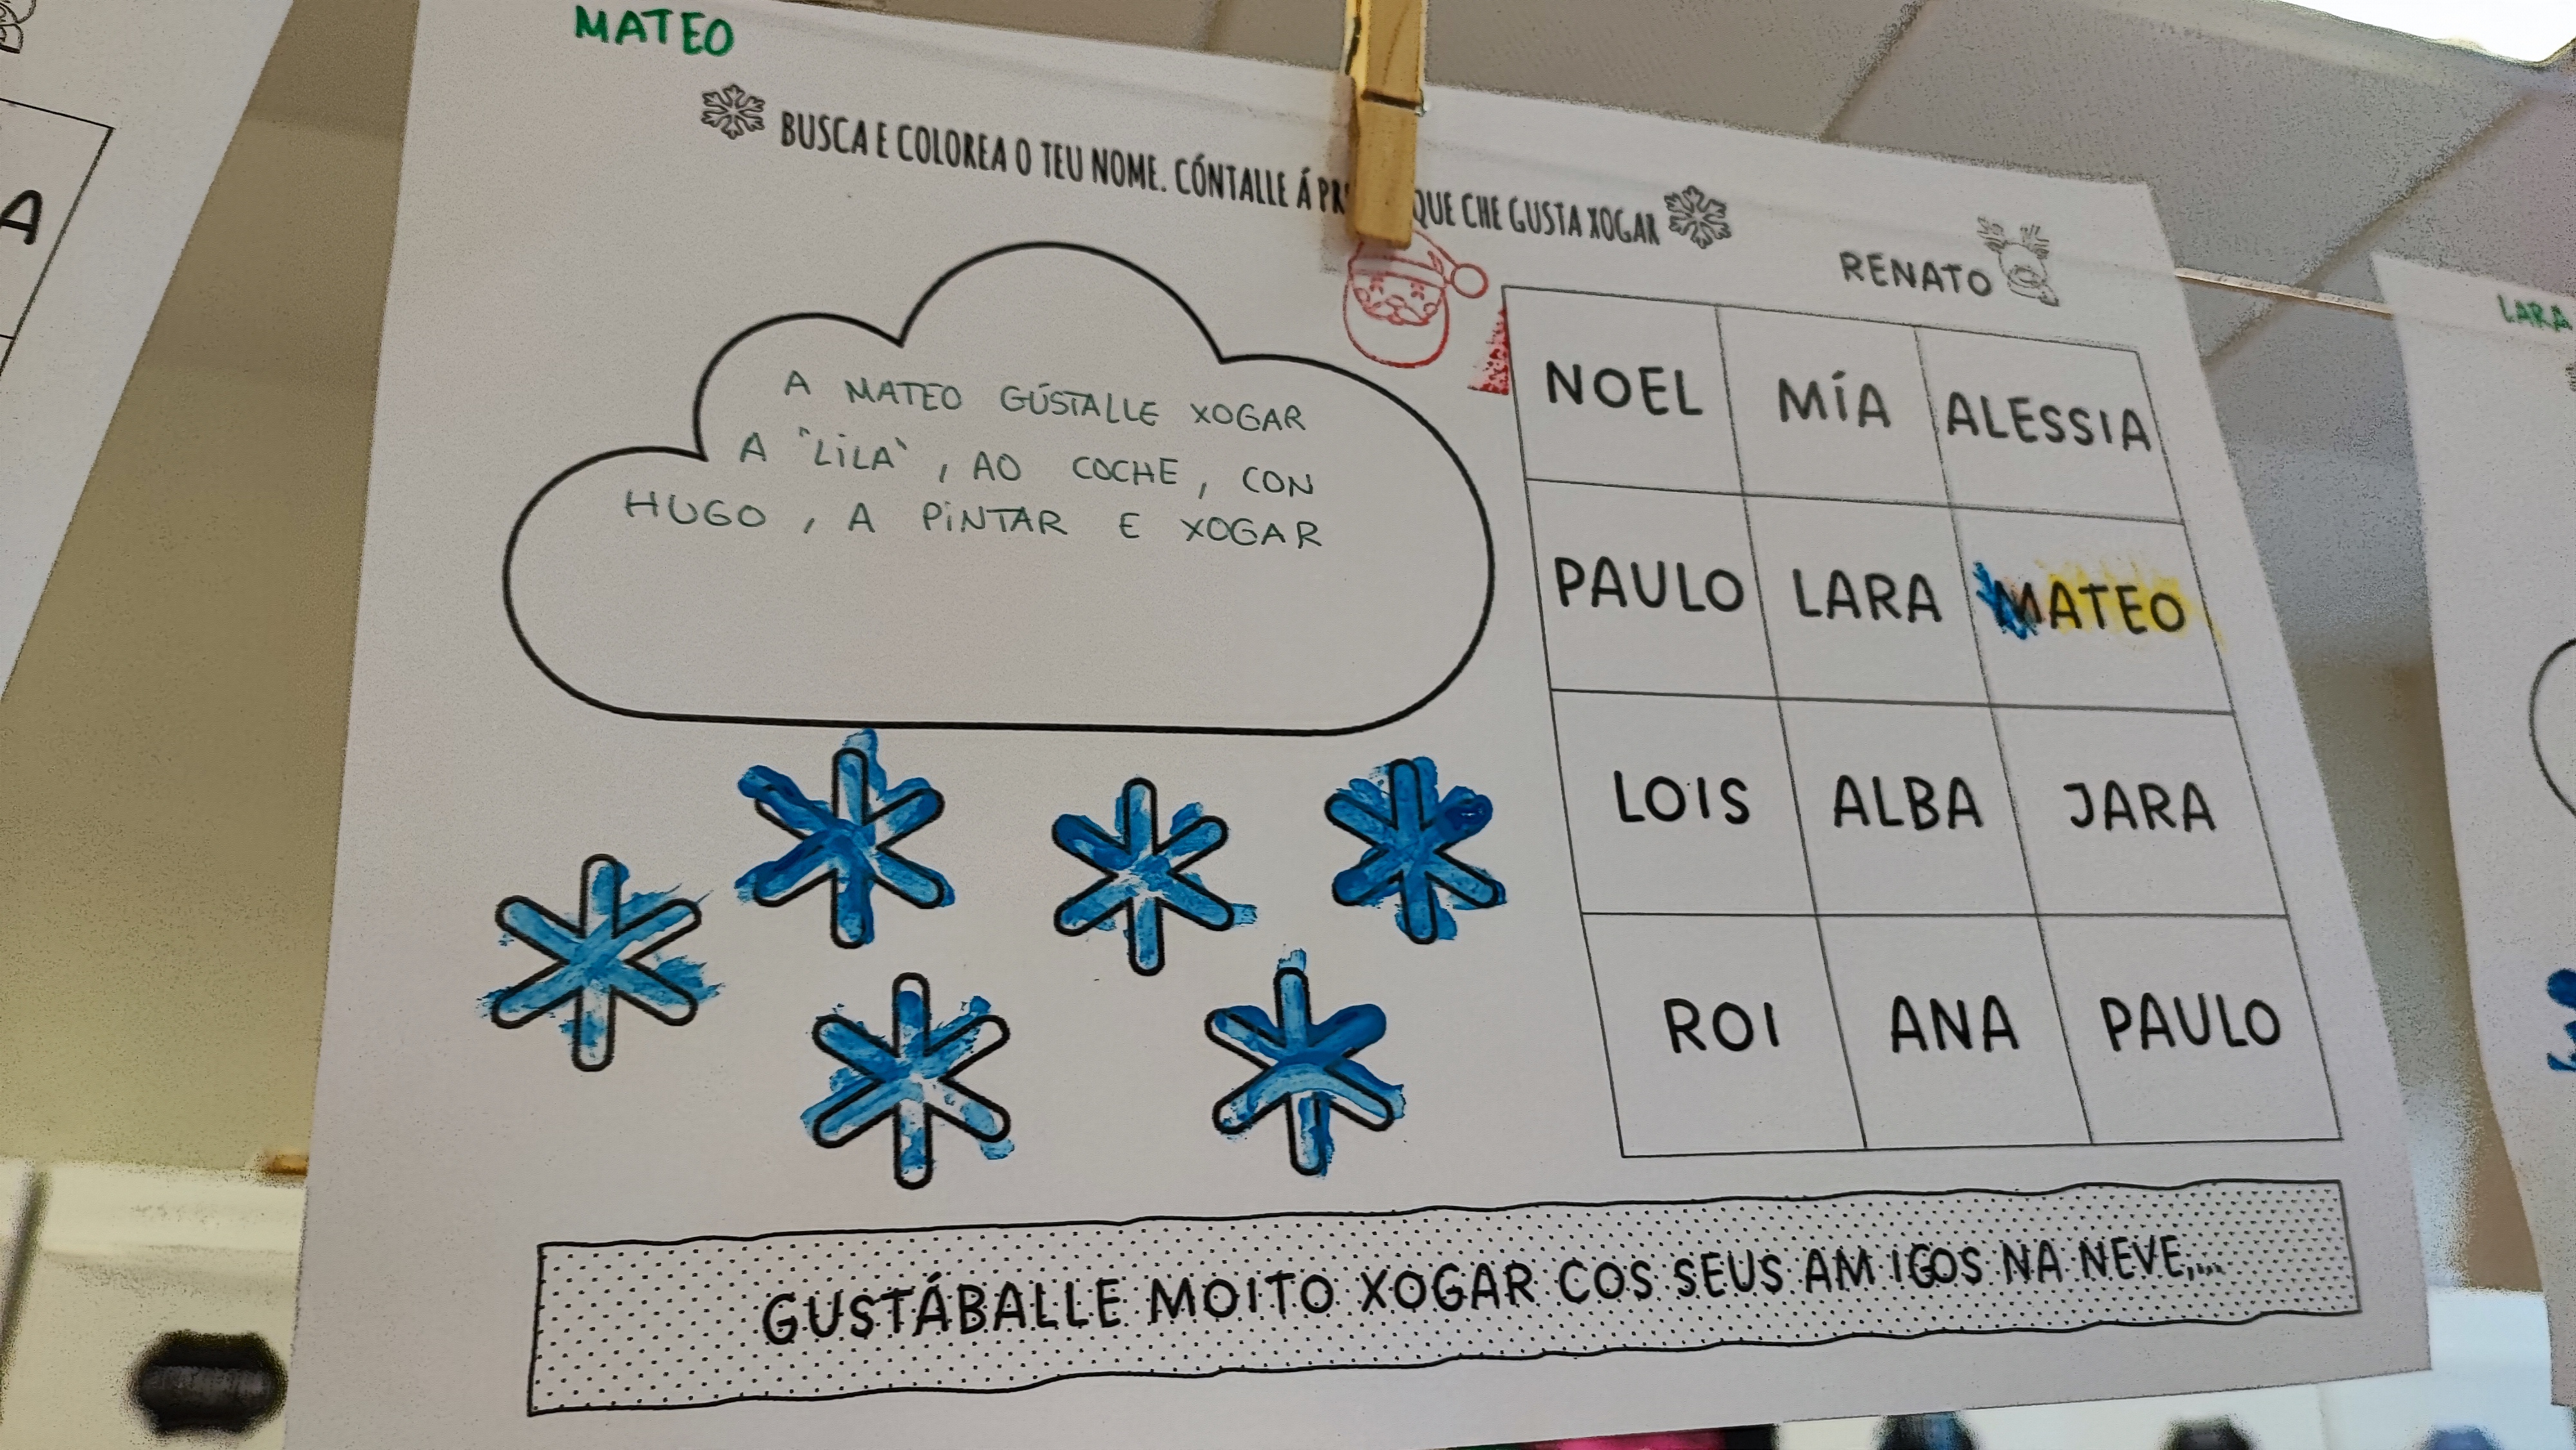 MATEO
BUSCA E COLOREA O TEU NOME. CÓNTALLE Á QUE CHE GUSTA XOGAR
RENATO
A MATEO GÚSTALLE XOGAR
A "LILA", AO COCHE, CON
HUGO, A PINTAR E XOGAR
NOEL MÍA ALESSIA
PAULO LARA MATEO
LOIS ALBA JARA
ROI ANA PAULO
GUSTÁBALLE MOITO XOGAR COS SEUS AMIGOS NA NEVE,...
LARA